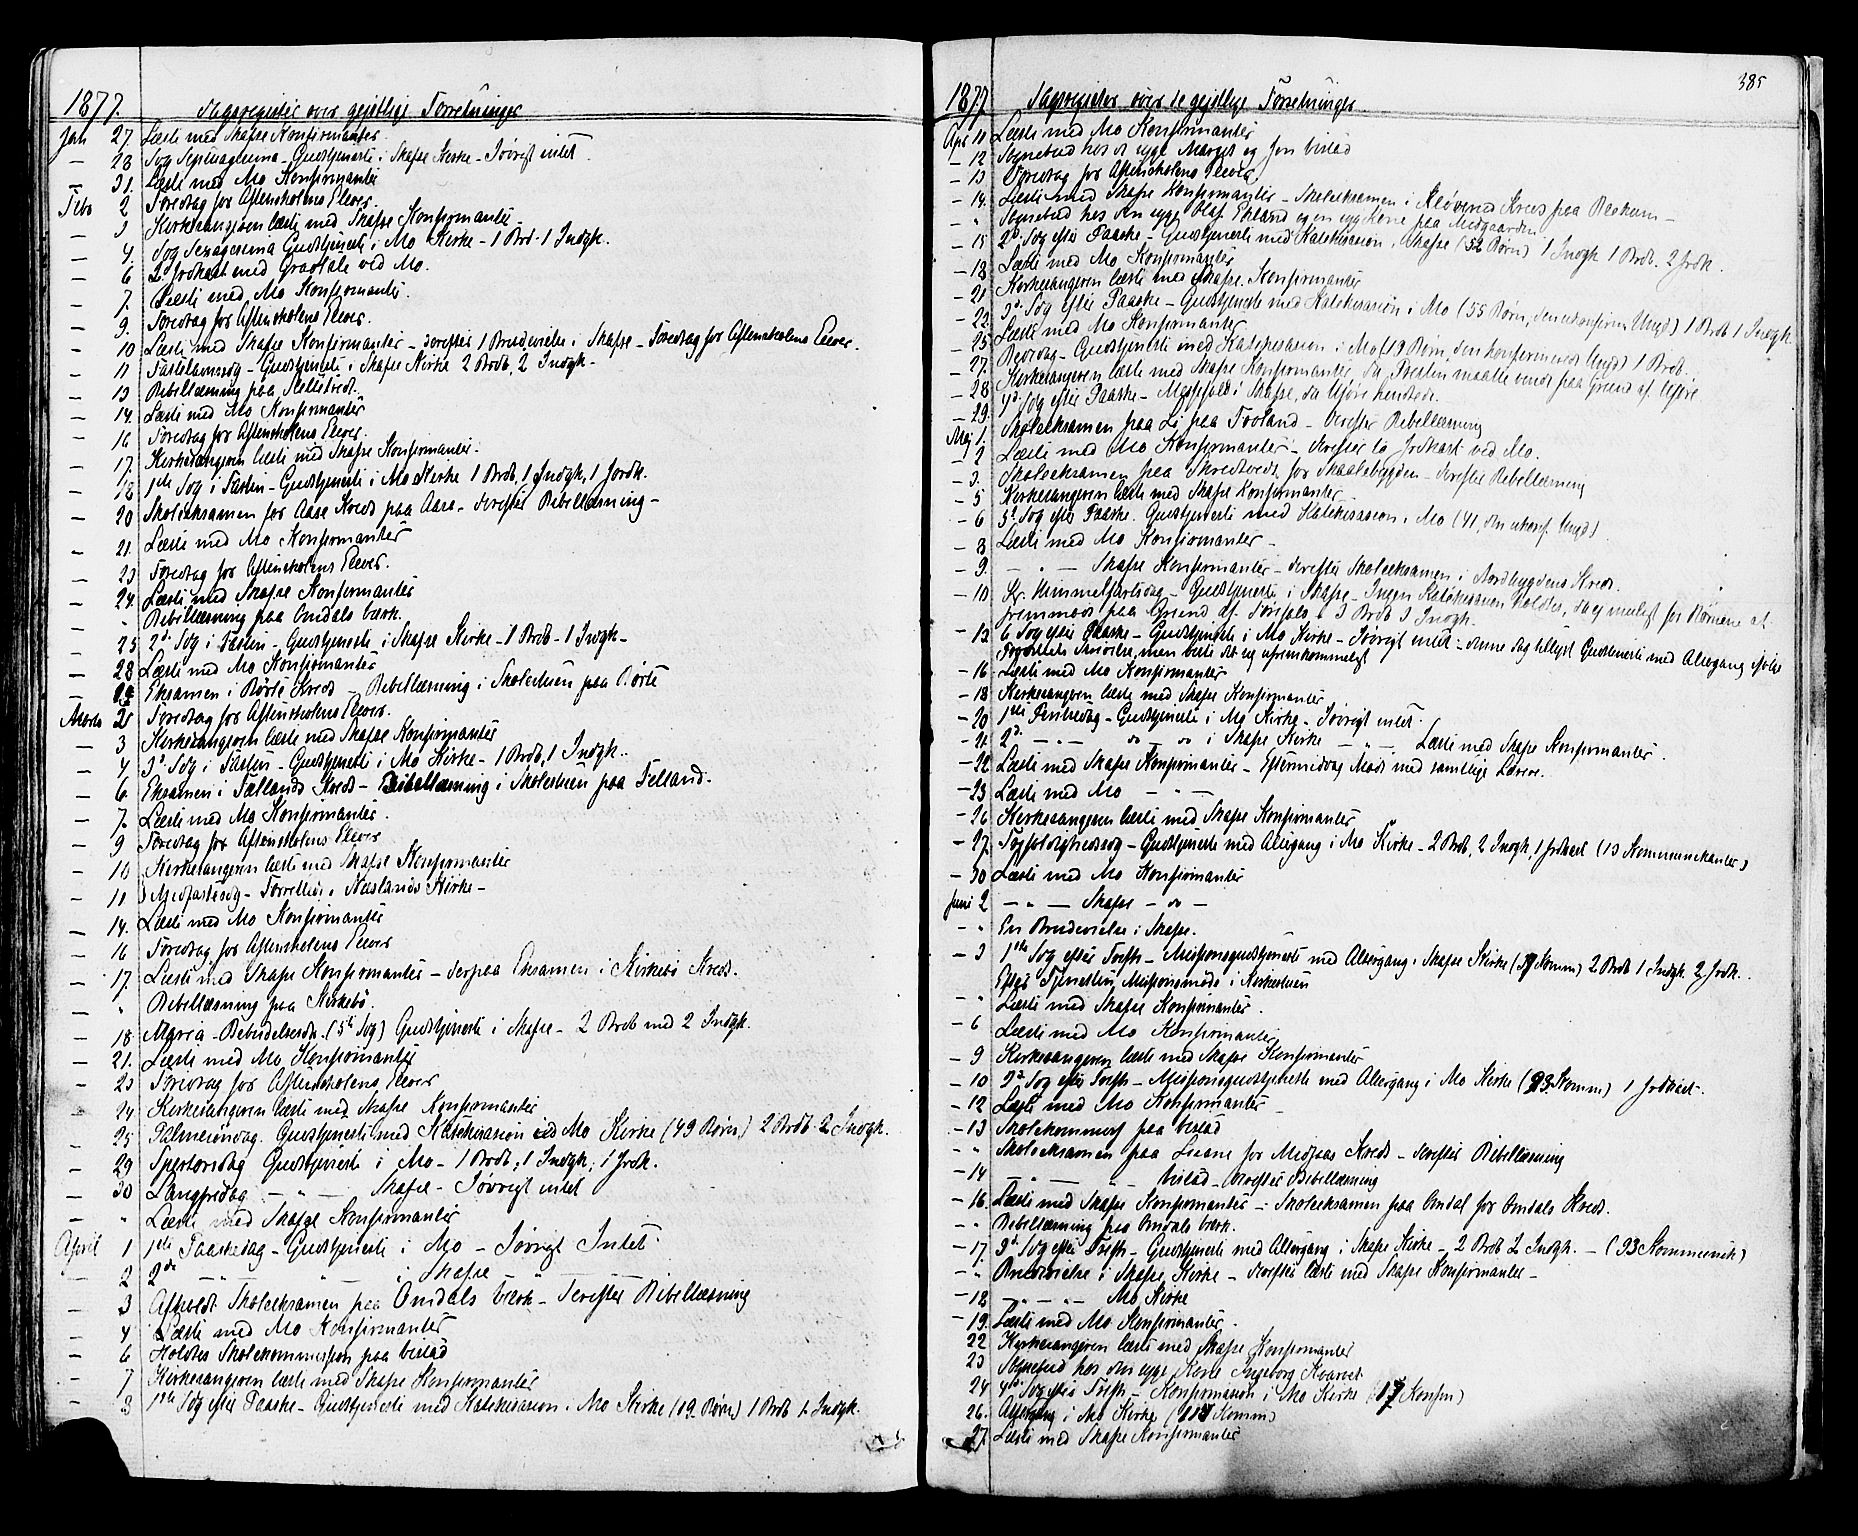 1877. Dagsregister over gejstlige Forretninger
Jan 27. Læste med Skafse Konfirmanter.
— 28 Søg Septuagesima – Gudstjeneste i Skafse Kirke – Iøvrigt intet.
— 31. Læste med Mo Konfirmanter
Febr 2 Foredrag for Aftenskolens Elever.
— 3 Kirkesangeren læste med Skafse Konfirmanter –
— 4. Søg Sexagesima Gudstjeneste i Mo Kirke – 1 Brd. 1 Indgk.
— 6 2 Jrdkast med Gravtale ved Mo.
— 7. Læste med Mo Konfirmanter.
— 9. Foredrag for Aftenskolens Elever.
— 10 Læste med Skafse Konfirmanter – derefter 1 Brudevielse i Skafse – Foredrag for Aftenskolens Elever.
— 11 Fastelavnssøg – Gudstjeneste i Skafse Kirke 2 Brdb, 2 Indgk –
— 13 Bibellæsning paa
— 14. Læste med Mo Konfirmanter
— 16 Foredrag for Aftenskolens Elever.
— 17. Kirkesangeren læste med Skafse Konfirmanter.
— 18 1ste Søg i Fasten – Gudstjeneste i Mo Kirke 1 Brdb, 1 Indgk, 1 Jordk.
— 20 Skoleeksamen for Aase Kreds paa Aase – derefter Bibellæsning –
— 21. Læste med Mo Konfirmanter
— 23 Foredrag for Aftenskolens Elever.
— 24. Læste med Skafse Konfirmanter
— " Bibellæsning paa Omdals værk.
— 25 2d. Søg i Fasten – Gudstjeneste i Skafse Kirke – 1 Brdb – 1 Indgk –
— 28 Læste med Mo Konfirmanter
— Eksamen i Børte Kreds – Bibellæsning i Skolestuen paa Børte
Marts 2 Foredrag for Aftenskolens Elever.
— 3 Kirkesangeren læste med Skafse Konfirmanter
— 4 3d. Søg i Fasten – Gudstjeneste i Mo Kirke – 1 Brdb, 1 Indgk.
— 6 Eksamen i Fællands Kreds – Bibellæsning i Skolestuen paa Felland.
— 7. Læste med Mo Konfirmanter.
— 9 Foredrag for Aftenskolens Elever
— 10 Kirkesangeren læste med Skafse Konfirmanter
— 11 Midfastesøg – Forrettede i Næslands Kirke –
— 14. Læste med Mo Konfirmanter
— 16 Foredrag for Aftenskolens Elever
— 17. Læste med Skafse Konfirmanter – derpaa Eksamen i Kirkebø Kreds.
— " Bibellæsning paa Kirkebø.
— 18 Maria-Bebudelsesdk. (5te Søg) Gudstjeneste i Skafse – 2 Brdb med 2 Indgk.
— 21. Læste med Mo Konfirmanter
— 23 Foredrag for Aftenskolens Elever
— 24 Kirkesangeren læste med Skafse Konfirmanter
— 25 Palmesøndag. Gudstjeneste med Katekisasion i Mo Kirke (49 Børn) 2 Brdb. 2 Indgk.
— 29 Skærtorsdag Gudstjeneste i Mo – 1 Brdb; 1 Indgk; 1 Jrdk.
— 30 Langfredag — " — Skafse – Iøvrigt intet
— " Læste med Skafse Konfirmanter
April 1 1ste Paaskedag – Gudstjeneste i Mo – Iøvrigt Intet
— 2 2de — " — " — i Skafse —
— 3 Afholdt Skoleeksamen paa Omdals Værk – Derefter Bibellæsning
— 4 Læste med Mo Konfirmanter
— 6 Holdtes Skolekommission paa
— 7 Kirkesangeren læste med Skafse Konfirmanter
— 8 1ste Søg efter Paaske – Gudstjeneste med Katekisasion i Mo Kirke (19 Børn) 1 Brdb 1 Indgk.
385
1877 Dagsregister over de gejstlige Forretninger
Apr 11 Læste med Mo Konfirmanter
— 12 Sognebud hos de syge Margit og Jon
— 13 Foredrag for Aftenskolens Elever
— 14. Læste med Skafse Konfirmanter – Skoleeksamen i Kløvereids Kreds paa –
— " Sognebud hos den syge Olaf og en syg Kone paa Midgaarden
— 15 2d. Søg efter Paaske – Gudstjeneste med Katekisasion i Skafse (52 Børn) 1 Indgk 1 Brdb. 2 Jrdk.
— 18 Læste med Mo Konfirmanter
— 21 Kirkesangeren læste med Skafse Konfirmanter
— 22 3d. Søg efter Paaske – Gudstjeneste med Katekisasion i Mo (55 Børn, den ukonfirm. Ungd) 1 Brdb 1 Indgk
— 25 Læste med Mo Konfirmanter
— 27. Bededag – Gudstjeneste med Katekisasion i Mo (19 Børn, den konfirmerede Ungd) 1 Brdb.
— 28 Kirkesangeren læste med Skafse Konfirmanter, da Presten maatte vende paa Grund af Uføre
— 29. 4d. Søg efter Paaske – Messefald i Skafse, da Uføre hindrede.
Maj 1. Skoleeksamen paa Li paa Froland – derefter Bibellæsning
— 2 Læste med Mo Konfirmanter – derefter to Jrdkast ved Mo.
— 3. Skoleeksamen paa Skredtveit for Skaalebygden – derefter Bibellæsning
— 5 Kirkesangeren læste med Skafse Konfirmanter
— 6 5d. Søg efter Paaske. Gudstjeneste med Katekisasion i Mo (41, den ukonf. Ungd)
— 8 Læste med Mo Konfirmanter –
— 9. — " — Skafse Konfirmanter – derefter Skoleeksamen i Nordbygdens Kreds.
— 10 Kr. Himmelfartsdag – Gudstjeneste i Skafse – Ingen Katekisasion holdtes, da ej muligt for Børnene at
fremmøde paa Grund af Føret – 3 Brdb 3 Indgk.
— 13 6 Søg efter Paaske – Gudstjeneste i Mo Kirke – Iøvrigt intet – denne Dag tillyst Gudstjeneste med Altergang efter
Provstens men blev det ej
— 16 Læste med Mo Konfirmanter
— 18 Kirkesangeren læste med Skafse Konfirmanter
— 20 1ste Pinsedag – Gudstjeneste i Mo Kirke – Iøvrigt intet.
— 21 2d. — " — do — do i Skafse Kirke — " — Læste med Skafse Konfirmanter.
— 22 Læste med Skafse Konfirmanter – Eftermiddag Møde med samtlige Lærere.
— 23 Læste med Mo — " —
— 26 Kirkesangeren læste med Skafse Konfirmanter
— 27. Trefoldighedssøg – Gudstjeneste med Altergang i Mo Kirke – 2 Brdb, 2 Indgk, 1 Jrdkast (13 Kommunikanter)
— 30 Læste med Mo Konfirmanter
Juni 2 — " — Skafse – do –
— " En Brudevielse i Skafse.
— 3 1ste Søg efter Trefh – Missionsgudstjeneste med Altergang i Skafse Kirke ( Komm) 2 Brdb 1 Indgk 2 Jrdk.
Efter Tjenesten Missionsmøde i Kirkestuen
— " Læste med Skafse Konfirmanter.
— 6 Læste med Mo Konfirmanter
— 9 Kirkesangeren læste med Skafse Konfirmanter
— 10 2d. Søg efter Trefh – Missionsgudstjeneste med Altergang i Mo Kirke (23 Komm) 1 Jrdkast.
— 12 Læste med Mo Konfirmanter
— 13 Skolekommiss paa
— " Skoleeksamen paa for Midjaas Kreds – derefter Bibellæsning
— 14 — " — – derefter Bibellæsning
— 16. Læste med Skafse Konfirmanter – Skoleeksamen paa Omdal for Omdals Kreds.
— " Bibellæsning paa Omdals værk.
— 17. 3d. Søg efter Trefh – Gudstjeneste med Altergang i Skafse Kirke – 2 Brdb 2 Indgk. – (93 Kommunik)
— " Brudevielse i Skafse Kirke – derefter læste med Skafse Konfirmanter –
— 18 — " — " — Mo Kirke
— 19. Læste med Mo Konfirmanter.
22 Kirkesangeren læste med Skafse Konfirmanter
23 Sognebud hos den syge Kone Ingeborg Kvarvet
24 4d. Søg efter Trefh – Konfirmasion i Mo Kirke (17 Konfm)
26. Altergang i Mo Kirke ( Komm)
27. Læste med Skafse Konfirmanter